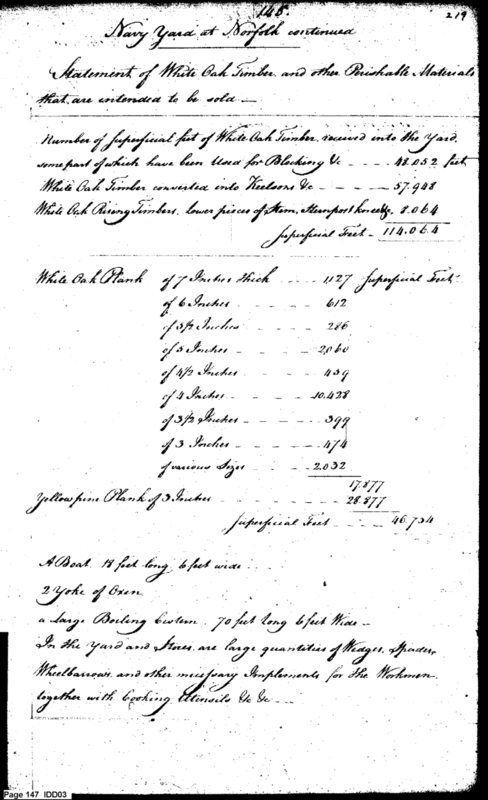 148.
219
Navy Yard at Norfolk continued
Statement of White Oak Timber and other Perishable Materials
that are intended to be sold —
Number of superficial feet of White Oak Timber received into the Yard,
some part of which have been Used for Blocking &c - - - 48.052 feet
White Oak Timber converted into Keelsons &c - - - - - 57.948
White Oak Rising Timbers, lower pieces of Stem, Sternpost knee &c. 8.064
Superficial Feet - 114.064
White Oak Plank of 7 Inches thick - - - 1127 Superficial Feet
of 6 Inches - - - - 612
of 5½ Inches - - - - 286
of 5 Inches - - - - 2.060
of 4½ Inches - - - - 459
of 4 Inches - - - - 10.428
of 3½ Inches - - - - 399
of 3 Inches - - - - 474
of various Sizes - - - 2.032
17.877
Yellow pine Plank of 3 Inches - - - - - - - 28.877
Superficial Feet - - - 46.734
A Boat 18 feet long 6 feet wide
2 Yoke of Oxen
a large Boiling Cistern 70 feet long 6 feet Wide —
In the Yard and Stores are large quantities of Wedges, Spades,
Wheelbarrows, and other necessary Implements for the Workmen
together with Cooking Utensils &c &c - -
Page 147 IDD03